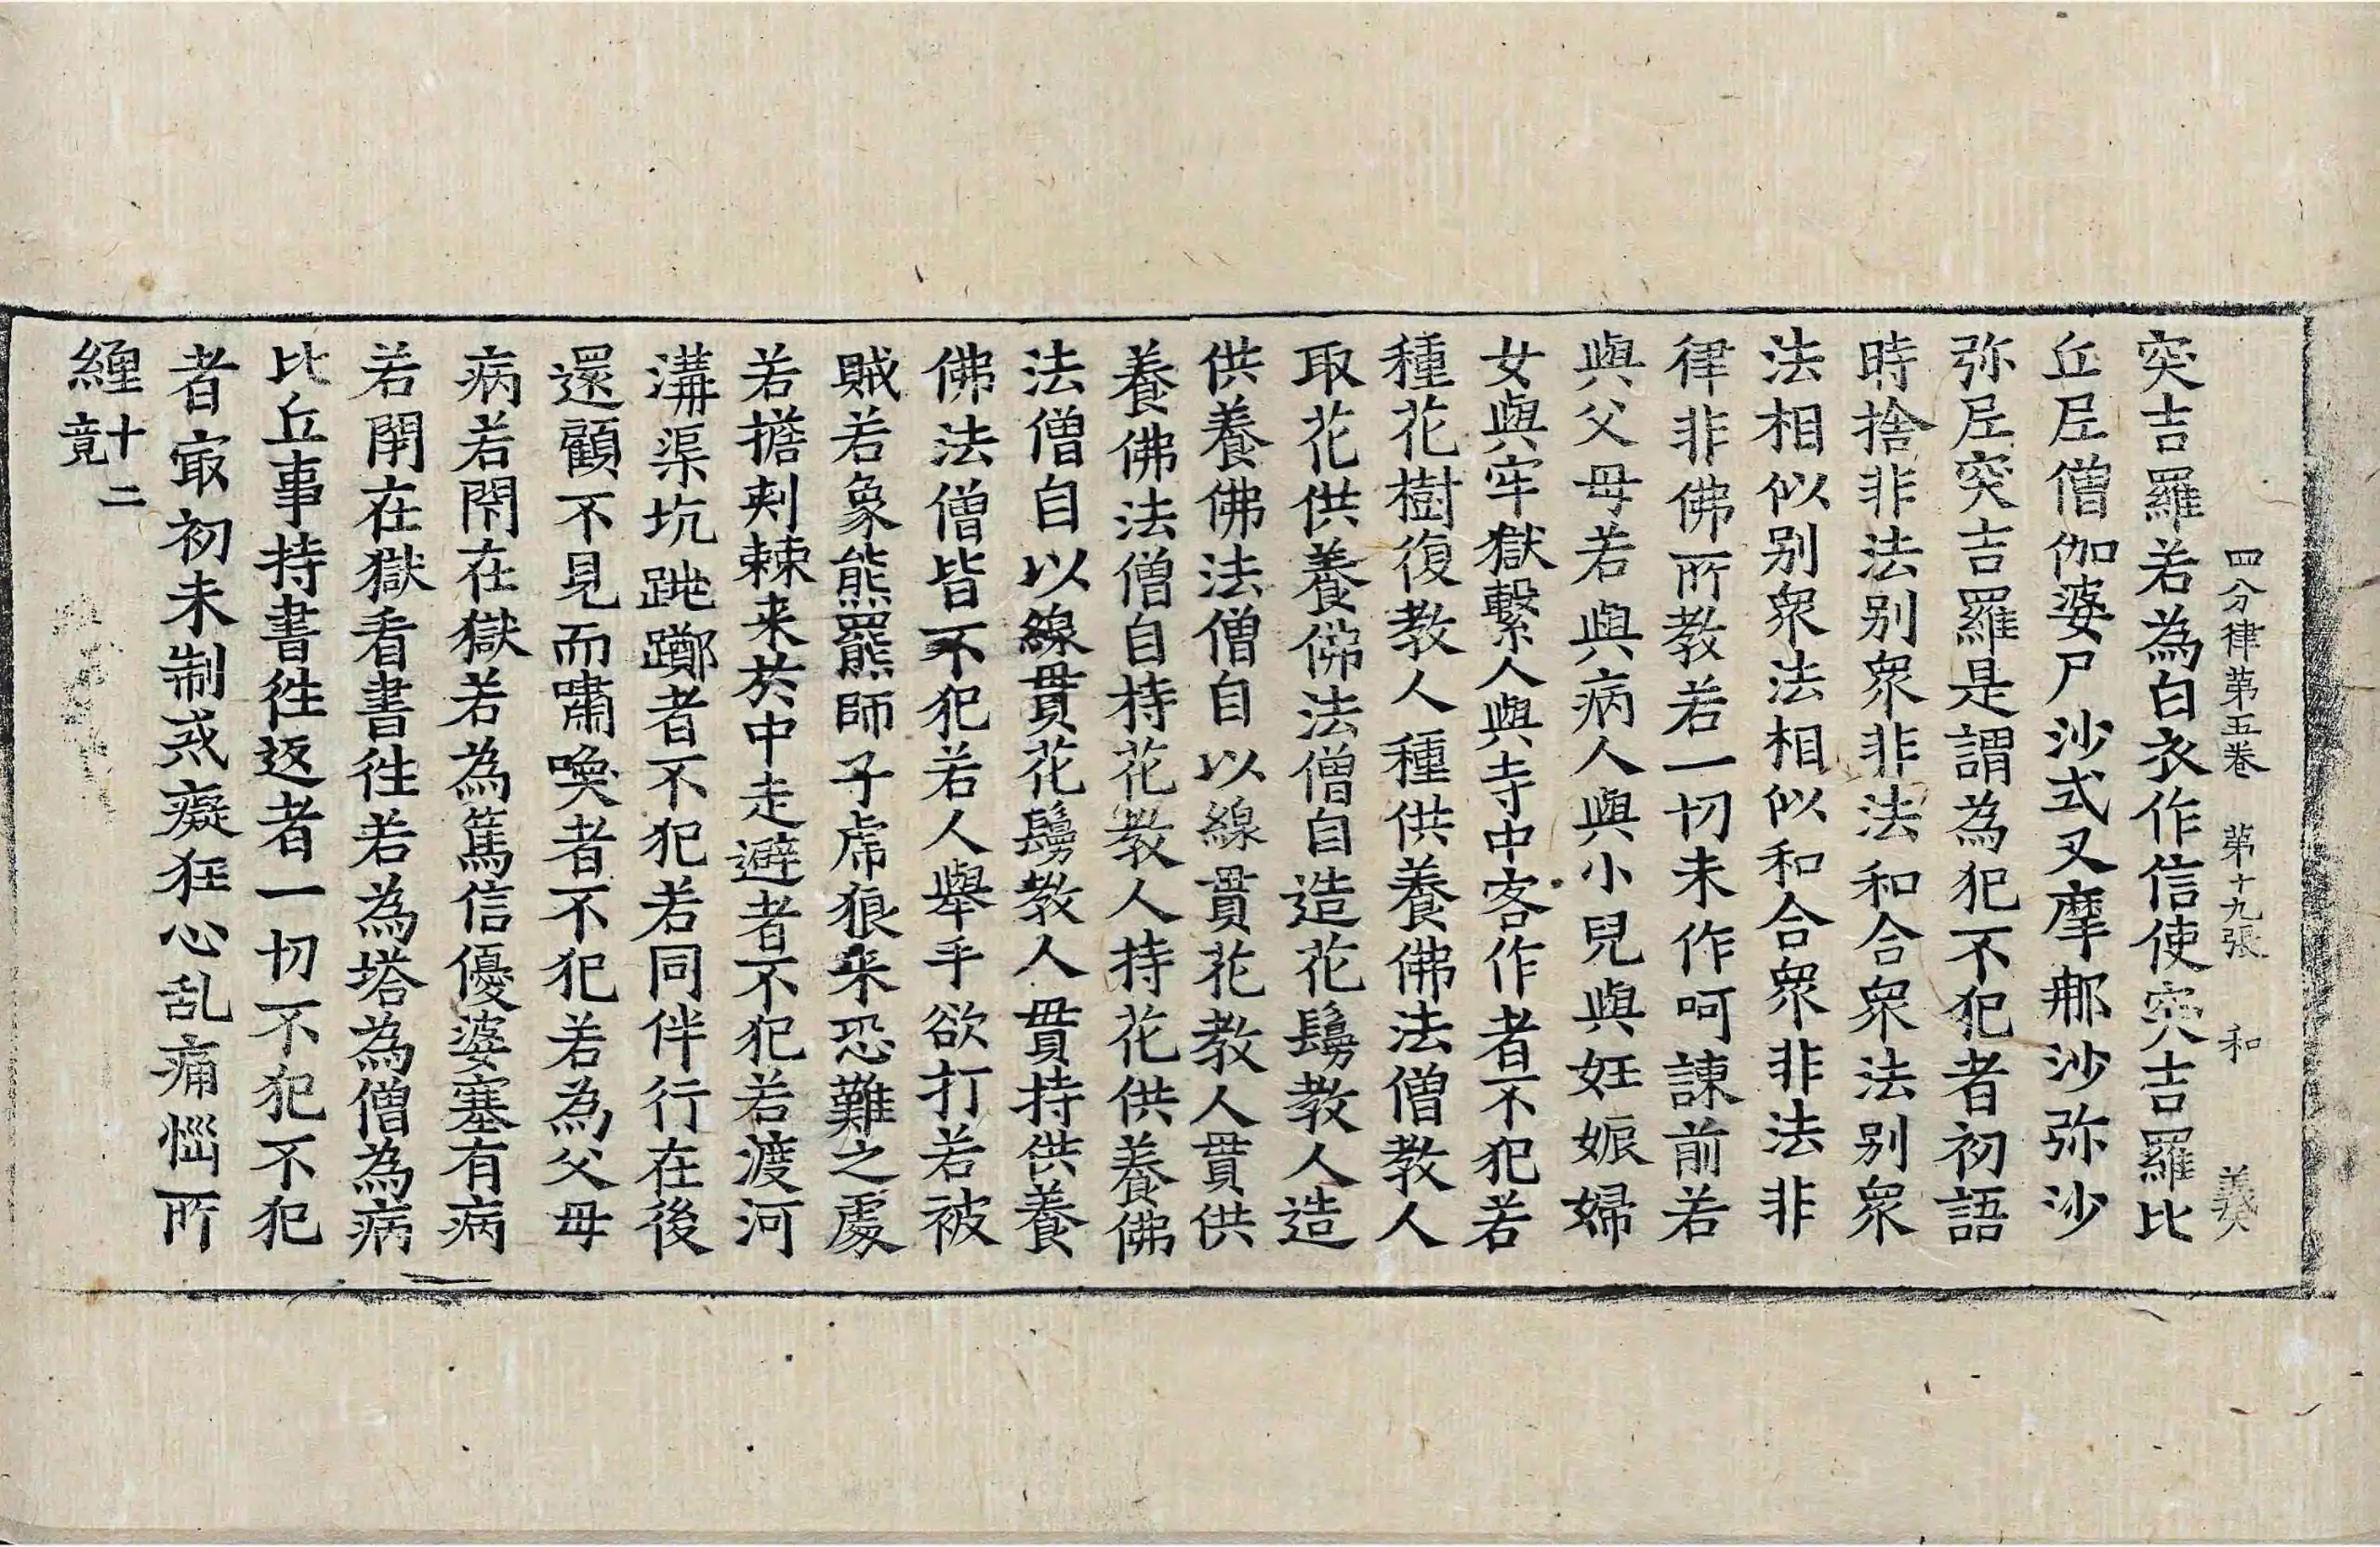 四分律第五卷　第十九張　和　義癸
突吉羅若為白衣作信使突吉羅比
丘尼僧伽婆尸沙式叉摩那沙弥沙
弥尼突吉羅是謂為犯不犯者初語
時捨非法别衆非法和合衆法别衆
法相似别衆法相似和合衆非法非
律非佛所教若一切未作呵諫前若
與父母若與病人與小兒與妊娠婦
女與牢獄繫人與寺中客作者不犯若
種花樹復教人種供養佛法僧教人
取花供養佛法僧自造花鬘教人造
供養佛法僧自以線貫花教人貫供
養佛法僧自持花教人持花供養佛
法僧自以線貫花鬘教人貫持供養
佛法僧皆不犯若人舉手欲打若被
賊若象熊羆師子虎狼来恐難之處
若擔刾棘来於中走避者不犯若渡河
溝渠坑跳躑者不犯若同伴行在後
還顧不見而嘯喚者不犯若為父母
病若閇在獄若為篤信優婆塞有病
若閇在獄看書徃若為塔為僧為病
比丘事持書徃返者一切不犯不犯
者㝡初未制戒癡狂心乱痛惱所
纏十二竟